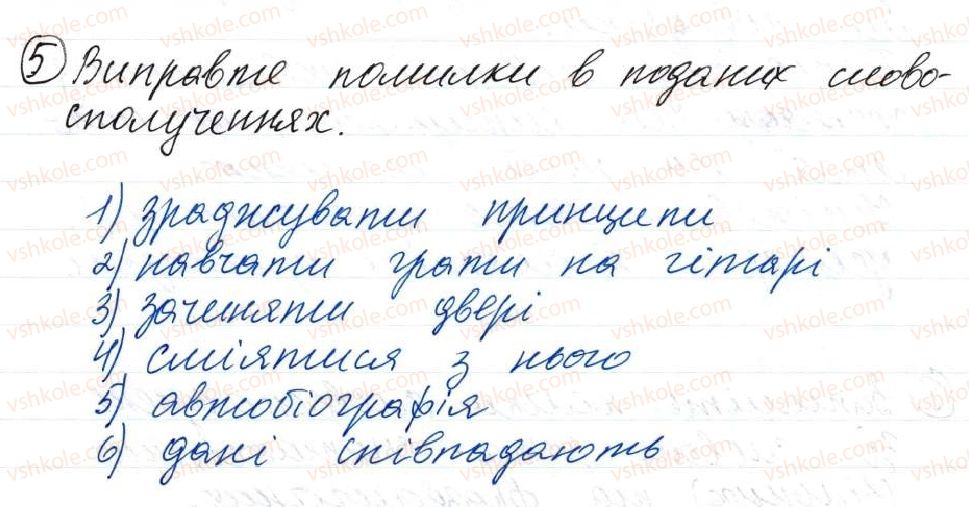 5 Виправте помилки в поданих слово-
сполученнях.
1) зраджувати принципи
2) навчати грати на гітарі
3) зачиняти двері
4) сміятися з нього
5) автобіографія
6) дані співпадають